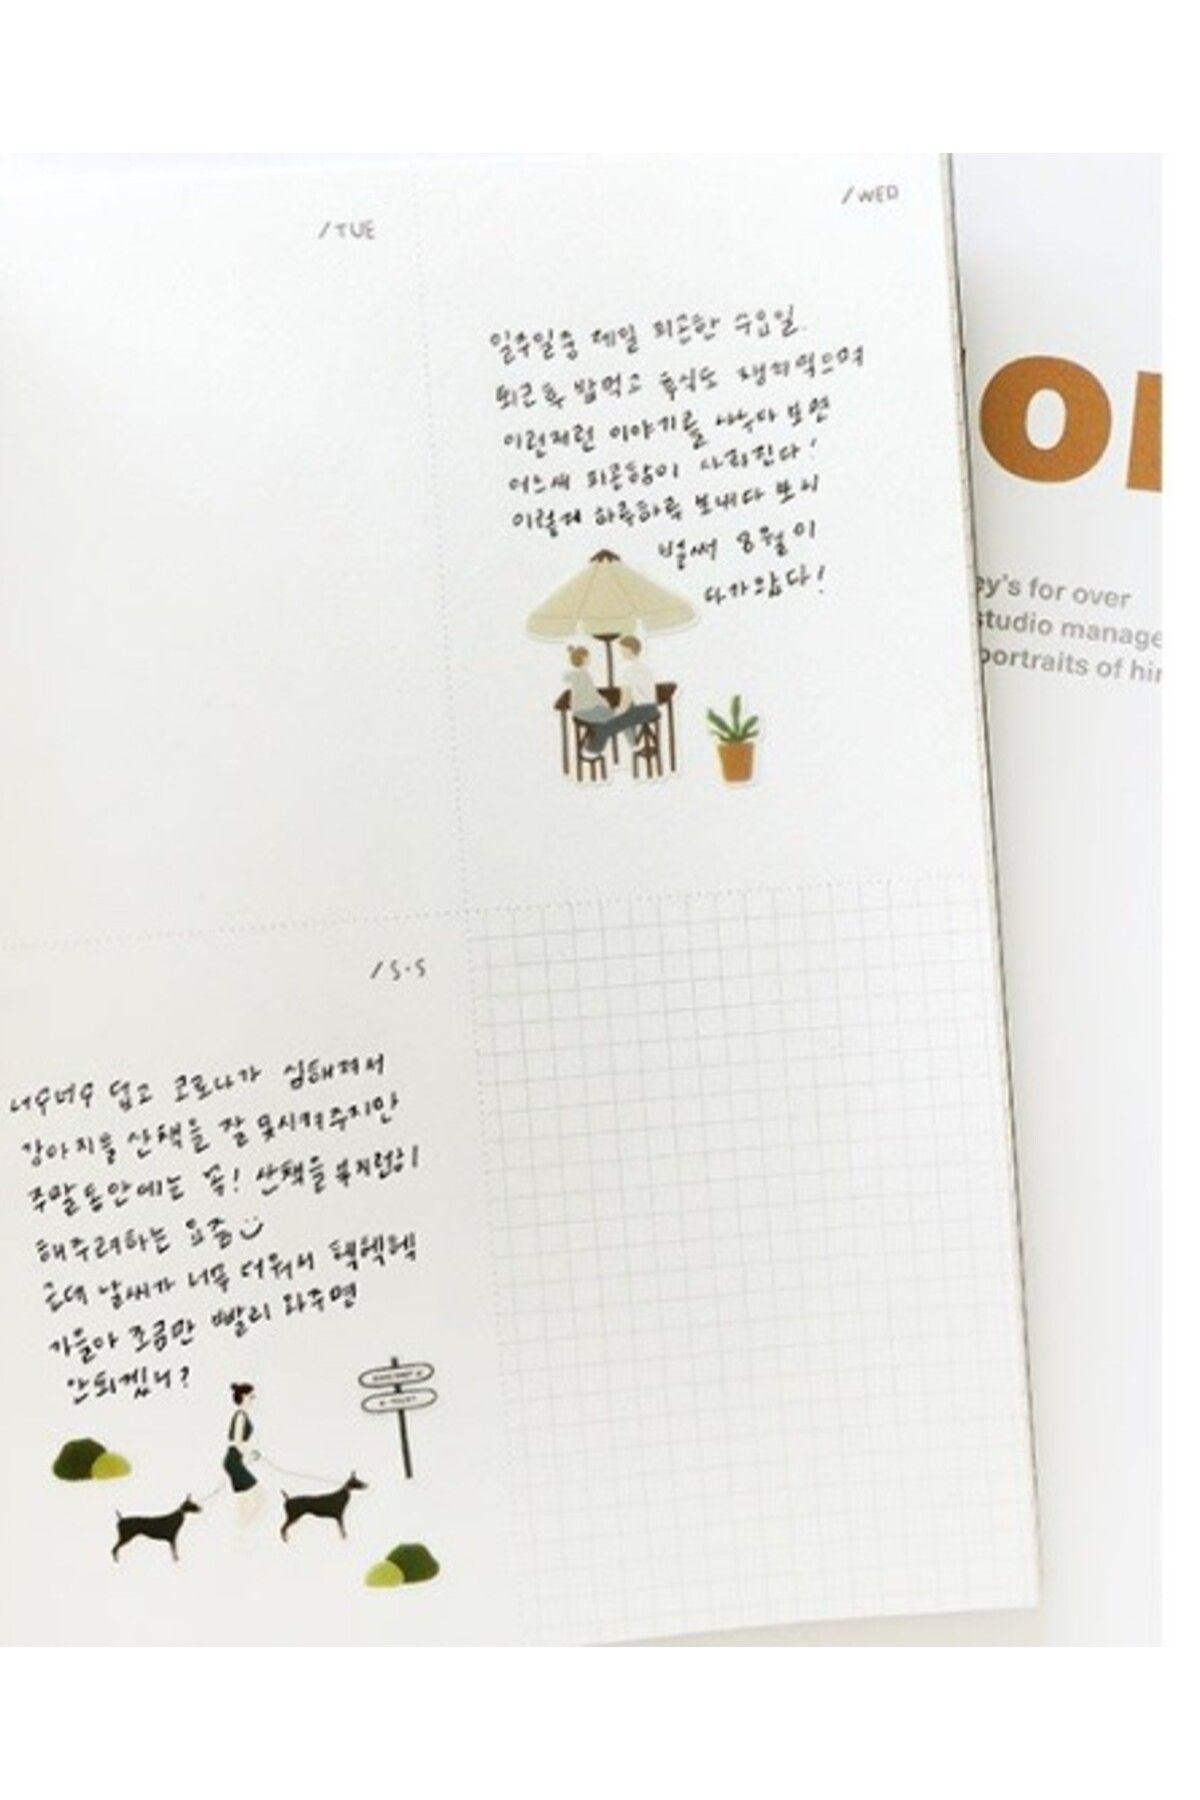 /TUE
/WED
일주일중 제일 피곤한 수요일.
퇴근후 밥먹고 후식도 챙겨먹으며
이런저런 이야기를 나누다 보면
어느새 피곤함이 사라진다!
이렇게 하루하루 보내다 보니
벌써 8월이
다가왔다!
/S·S
너무너무 덥고 코로나가 심해져서
강아지들 산책을 잘 못시켜주지만
주말동안에는 꼭! 산책을 부지런히
해주려하는 요즘
근데 날씨가 너무 더워서 헥헥헥
가을아 조금만 빨리 와주면
안되겠니?
ey's for over
studio manage
portraits of hi